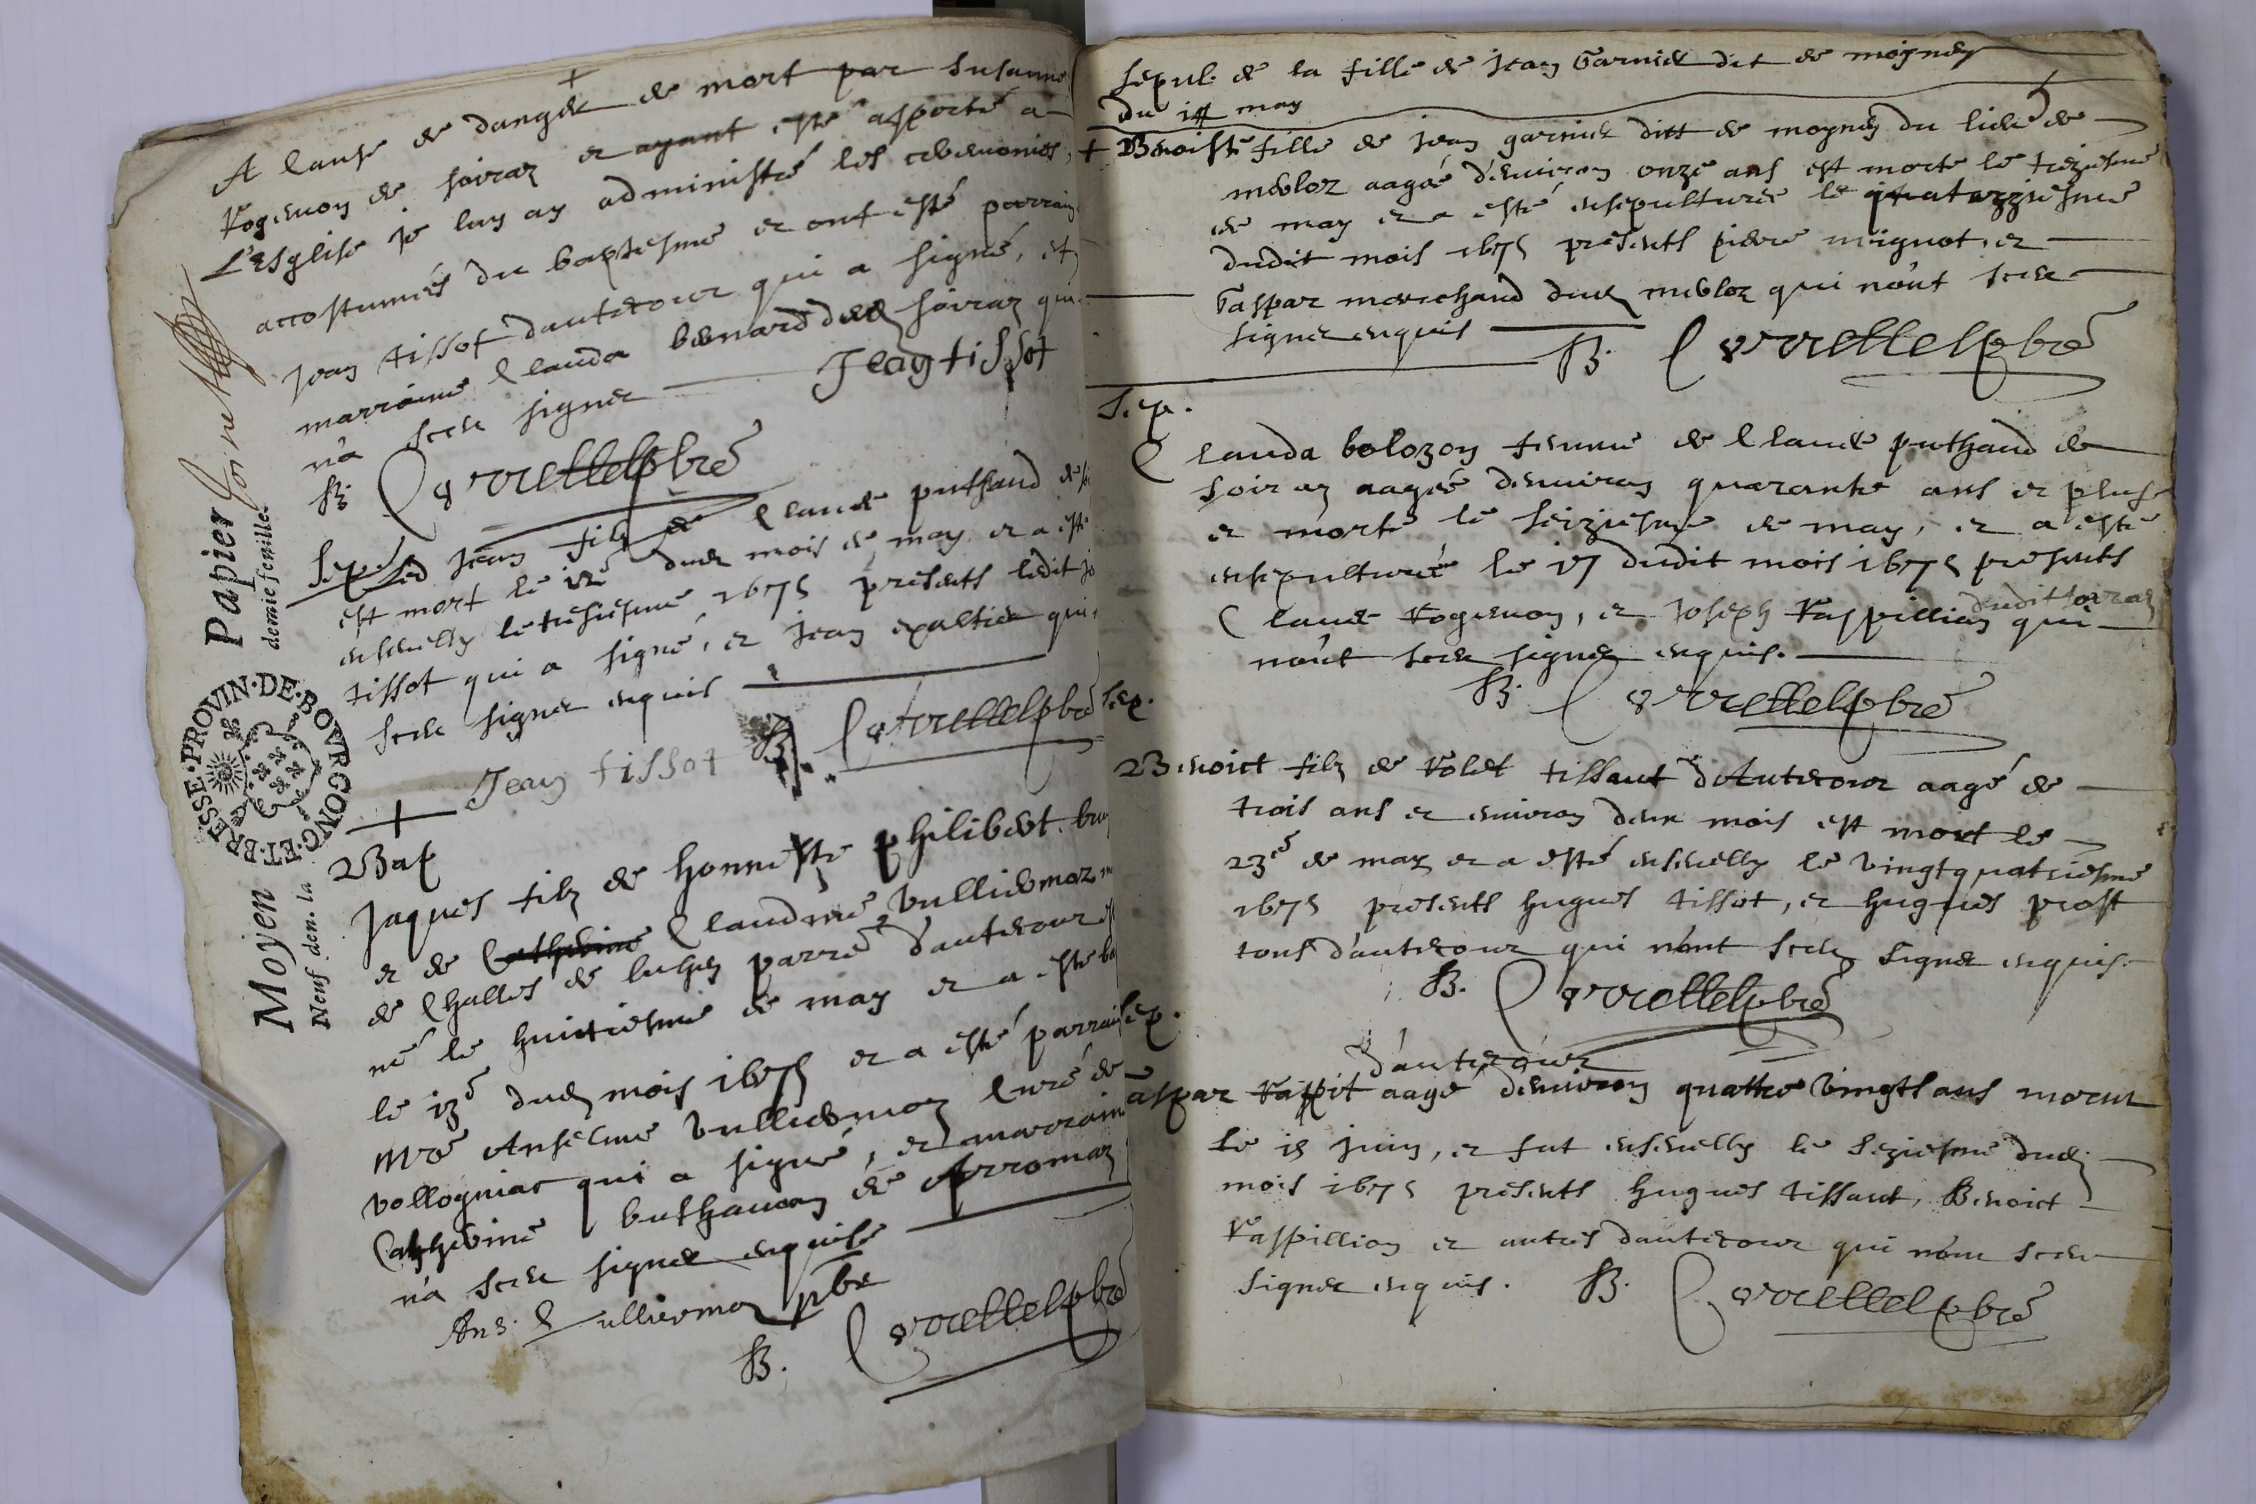 A cause de danger de mort par Susanne
Rogemon de soiraz et ayant esté apporté a
L'Esglise je luy ay administré les ceremonies
accostumées du baptesme et ont esté parrain
Jean tissot dautecour qui a signé, et
marraine Clauda benard dud soiraz qui
n'a sceu signer
Jean tissot
B. Cverrettet pbre
Sep. Led Jean filz de Claude puthaud de
est mort le dud mois de may et a esté
ensevelly le tresiesme 1675 presents ledit
tissot qui a signé, et Jean qui
sceu signer enquis
Jean tissot B. pbre
Bap
Jaques filz de honneste philibert
et de Catherine Claudine Vulliermoz
de Challes de parre d'autecour
né le huictiesme de may et a esté
le 13e dud mois 1675 et a esté parrain
Mre Anselme Vulliermoz Curé de
vollogniac qui a signé, et marraine
Catherine buthauon de Arromaz
n'a sceu signer enquise
Ans. Vulliermoz pbre
B. pbre
Moyen Papier
Neuf den. la demie feuille.
PROVIN·DE·BOVRGONG·ET·BRESSE
Sepul. de la fille de Jean Garnier dit de moyney
du 14 may
+ Benoiste fille de Jean garnier ditt de moyney du lieu de
merloz aagée d'environ onze ans est morte le treziesme
de may et a esté ensepulturée le quatorziesme
dudit mois 1675 presents pierre mignot, et
Gaspar marchand dud merloz qui n'ont sceu
signer enquis
B. pbre
Sep.
Clauda bolozon femme de Claude puthaud de
soiraz aagée d'environ quarante ans et plus
et morte le seiziesme de may, et a esté
ensepulturée le 17 dudit mois 1675 presents
Claude Rogemon, et Joseph Raspillion dudit soiraz qui
n'ont sceu signer enquis.
B. pbre
Sep.
Benoict filz de Rolet tissaut d'Autecour aagé de
trois ans et environ deux mois est mort le
23e de may et a esté ensevelly le vingtquatriesme
1675 presents hugues tissot, et hugues prost
tous d'autecour qui n'ont sceu signer enquis.
B. pbre
Sep.
d'autecour
Gaspar Raspit aagé d'environ quattre vingts ans morut
le 15 juin, et fut ensevelly le seziesme dud
mois 1675 presents hugues tissaut, Benoict
Raspillion et autres dautecour qui n'ont sceu
signer enquis. B. pbre